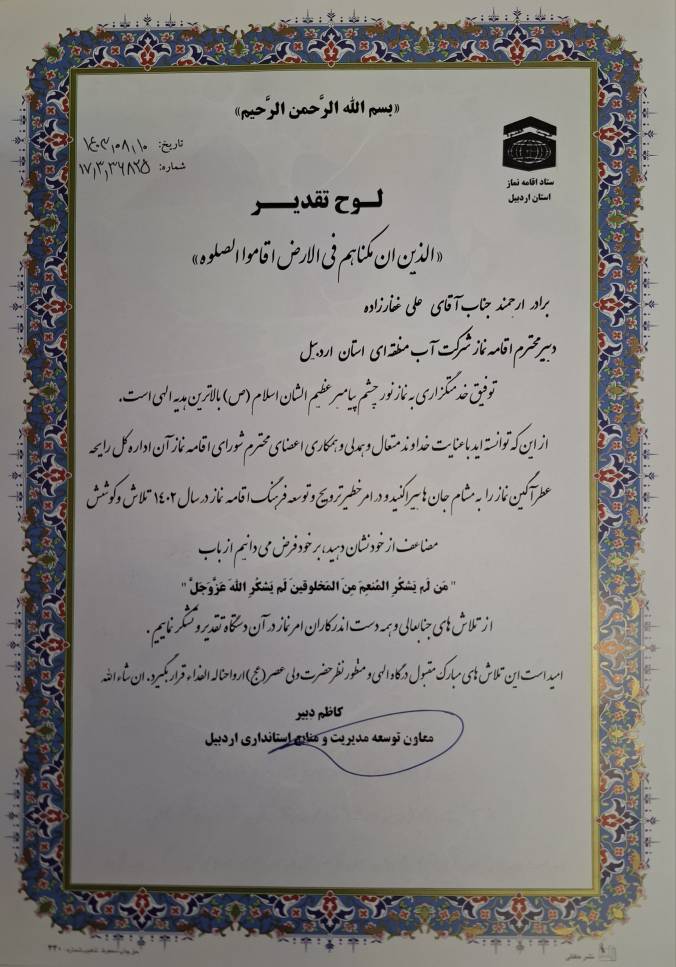 «بسم الله الرَّحمن الرَّحیم»
تاریخ: ۱۴۰۳٫۰۸٫۱۰
شماره: ۱۷٫۳٫۳۶۸۲۵
ستاد اقامه نماز
استان اردبیل
لوح تقدیر
«الذین ان مکناهم فی الارض اقاموا الصلوه»
برادر ارجمند جناب آقای علی غفارزاده
دبیر محترم اقامه نماز شرکت آب منطقه ای استان اردبیل
توفیق خدمتگزاری به نماز نور چشم پیامبر عظیم الشان اسلام (ص) بالاترین هدیه الهی است.
از این که توانسته اید با عنایت خداوند متعال و همدلی و همکاری اعضای محترم شورای اقامه نماز آن اداره کل رایحه
عطرآگین نماز را به مشام جان ها بپراکنید و در امر خطیر ترویج و توسعه فرهنگ اقامه نماز در سال ۱۴۰۲ تلاش و کوشش
مضاعف از خود نشان دهید، بر خود فرض می دانیم از باب
" مَن لَم یَشکُرِ المُنعِمَ مِنَ المَخلوقینَ لَم یَشکُرِ اللهَ عَزَّوَجَلَّ "
از تلاش های جنابعالی و همه دست اندرکاران امر نماز در آن دستگاه تقدیر و تشکر نماییم.
امید است این تلاش های مبارک مقبول درگاه الهی و منظور نظر حضرت ولی عصر (عج) ارواحنا له الفداء قرار بگیرد. ان شاء الله
کاظم دبیر
معاون توسعه مدیریت و منابع استانداری اردبیل